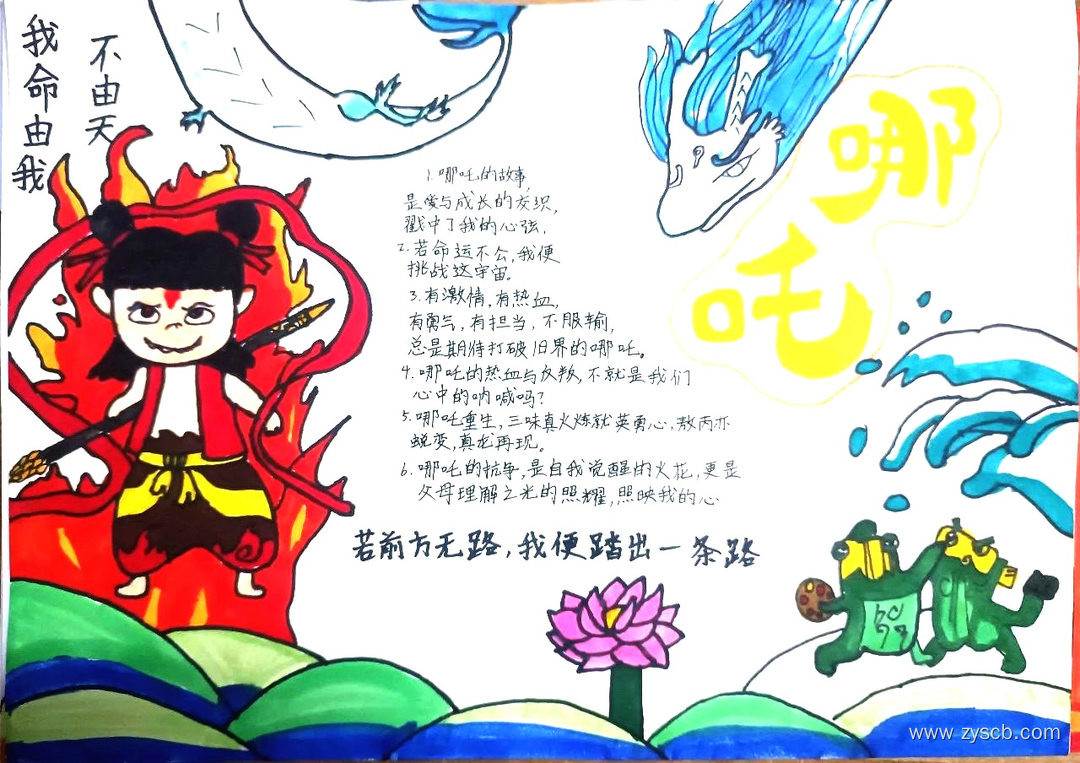 我命由我
不由天
哪吒
1. 哪吒的故事,
是爱与成长的交织,
戳中了我的心弦,
2. 若命运不公,我便
挑战这宇宙。
3. 有激情,有热血,
有勇气,有担当,不服输,
总是期待打破旧界的哪吒。
4. 哪吒的热血与反叛,不就是我们
心中的呐喊吗?
5. 哪吒重生,三味真火炼就英勇心,敖丙亦
蜕变,真龙再现。
6. 哪吒的抗争,是自我觉醒的火花,更是
父母理解之光的照耀,照映我的心
若前方无路,我便踏出一条路
www.zyscb.com